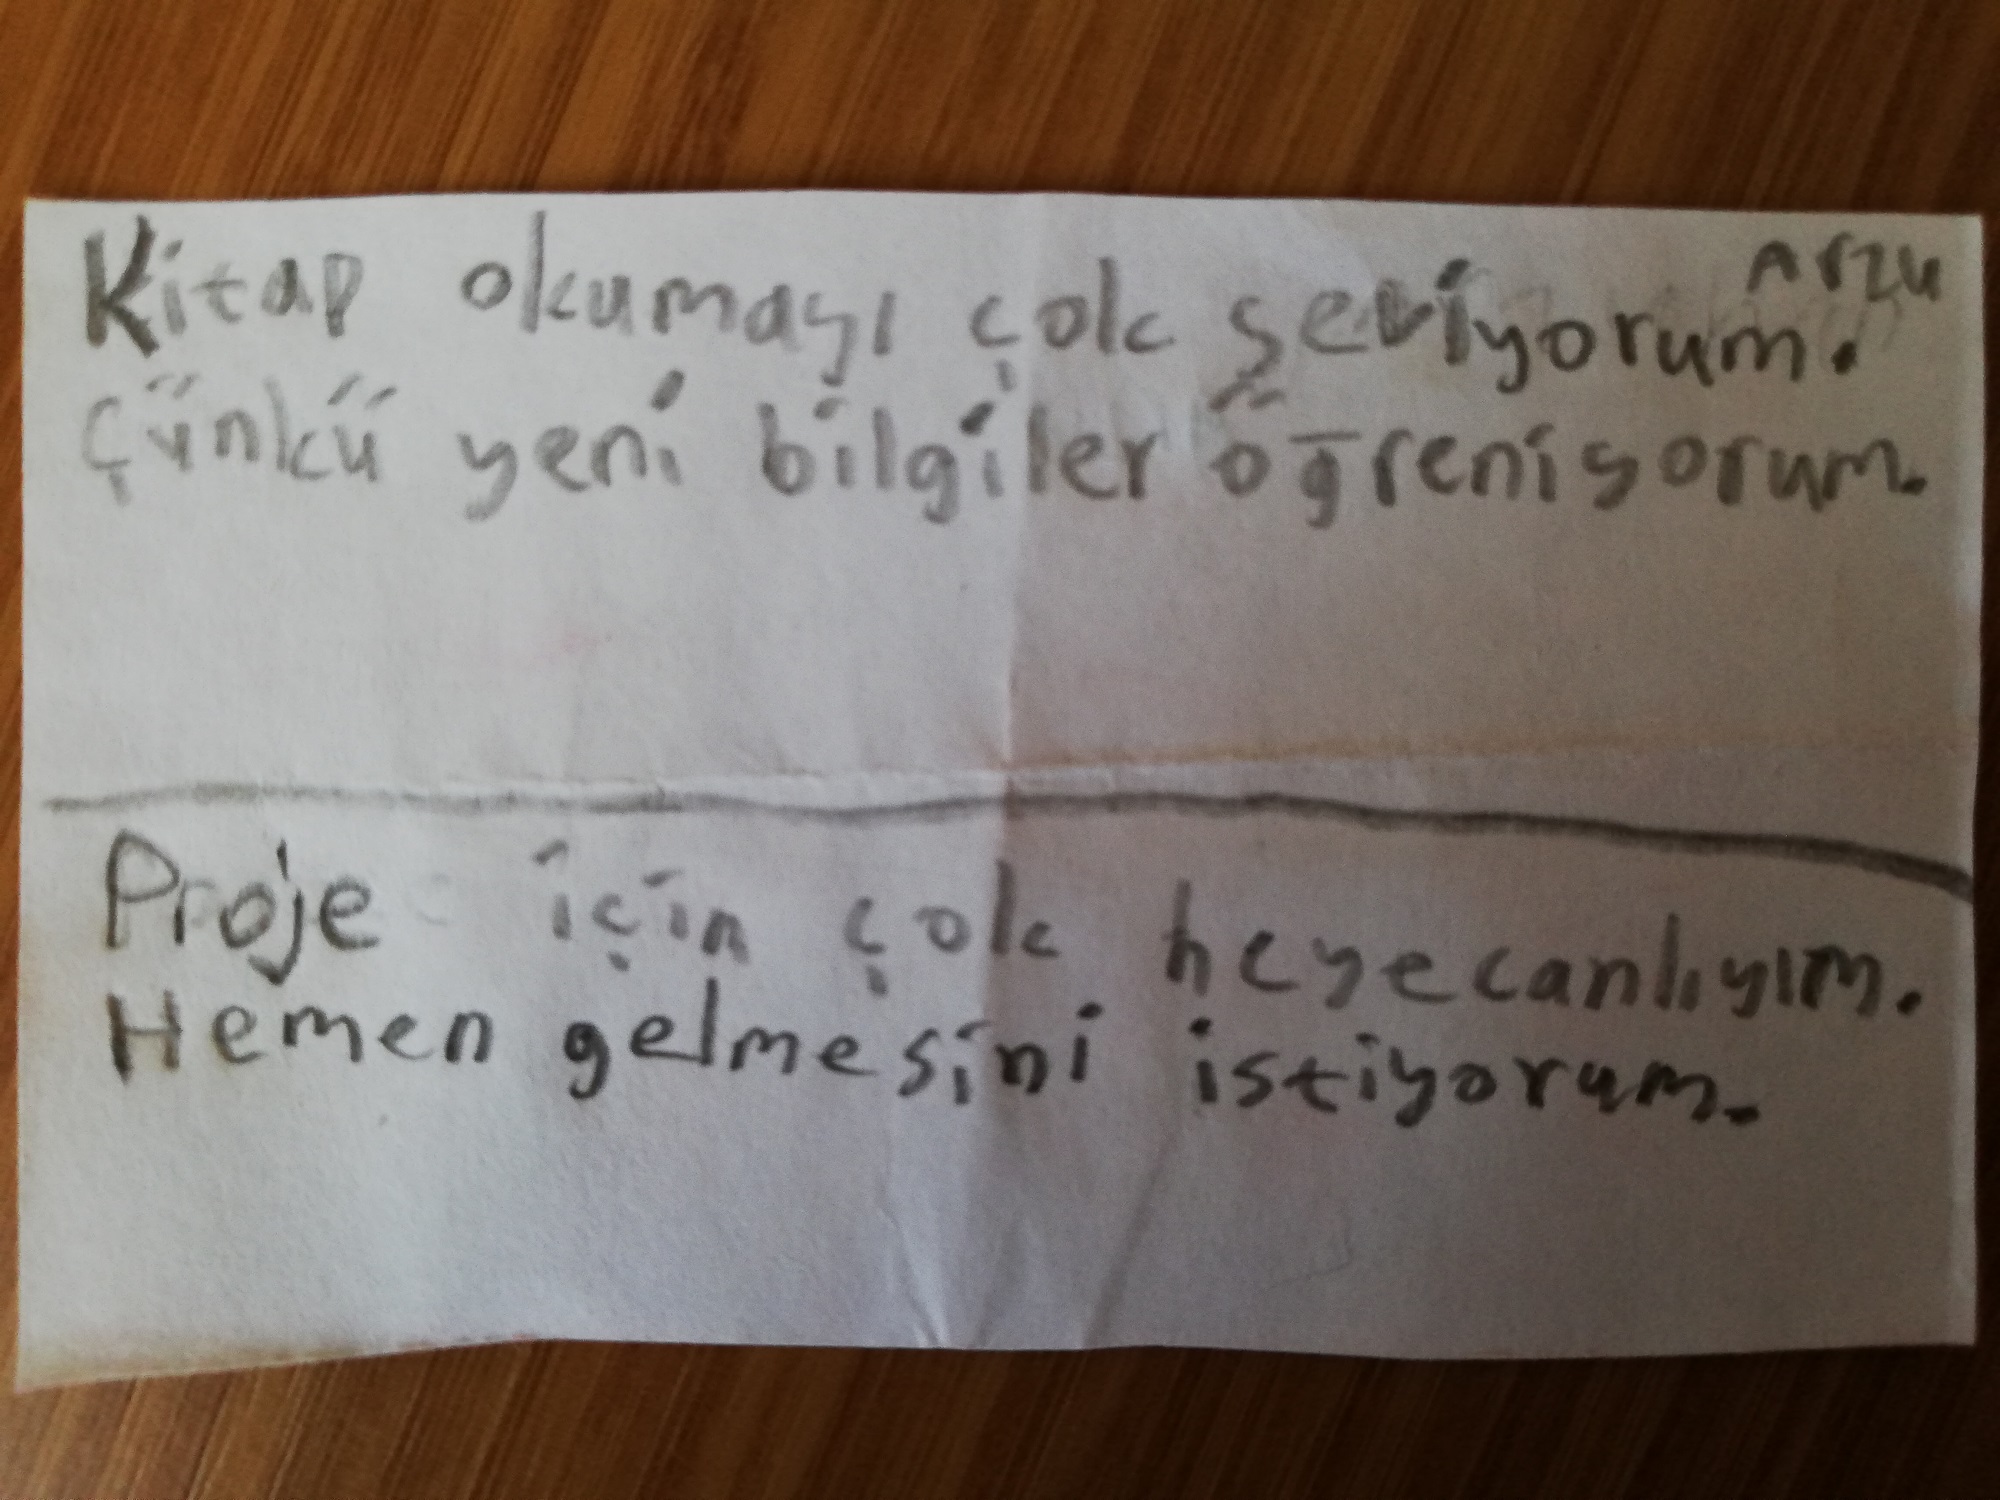 Arzu
Kitap okumayı çok seviyorum.
Çünkü yeni bilgiler öğreniyorum.
Proje için çok heyecanlıyım.
Hemen gelmesini istiyorum.